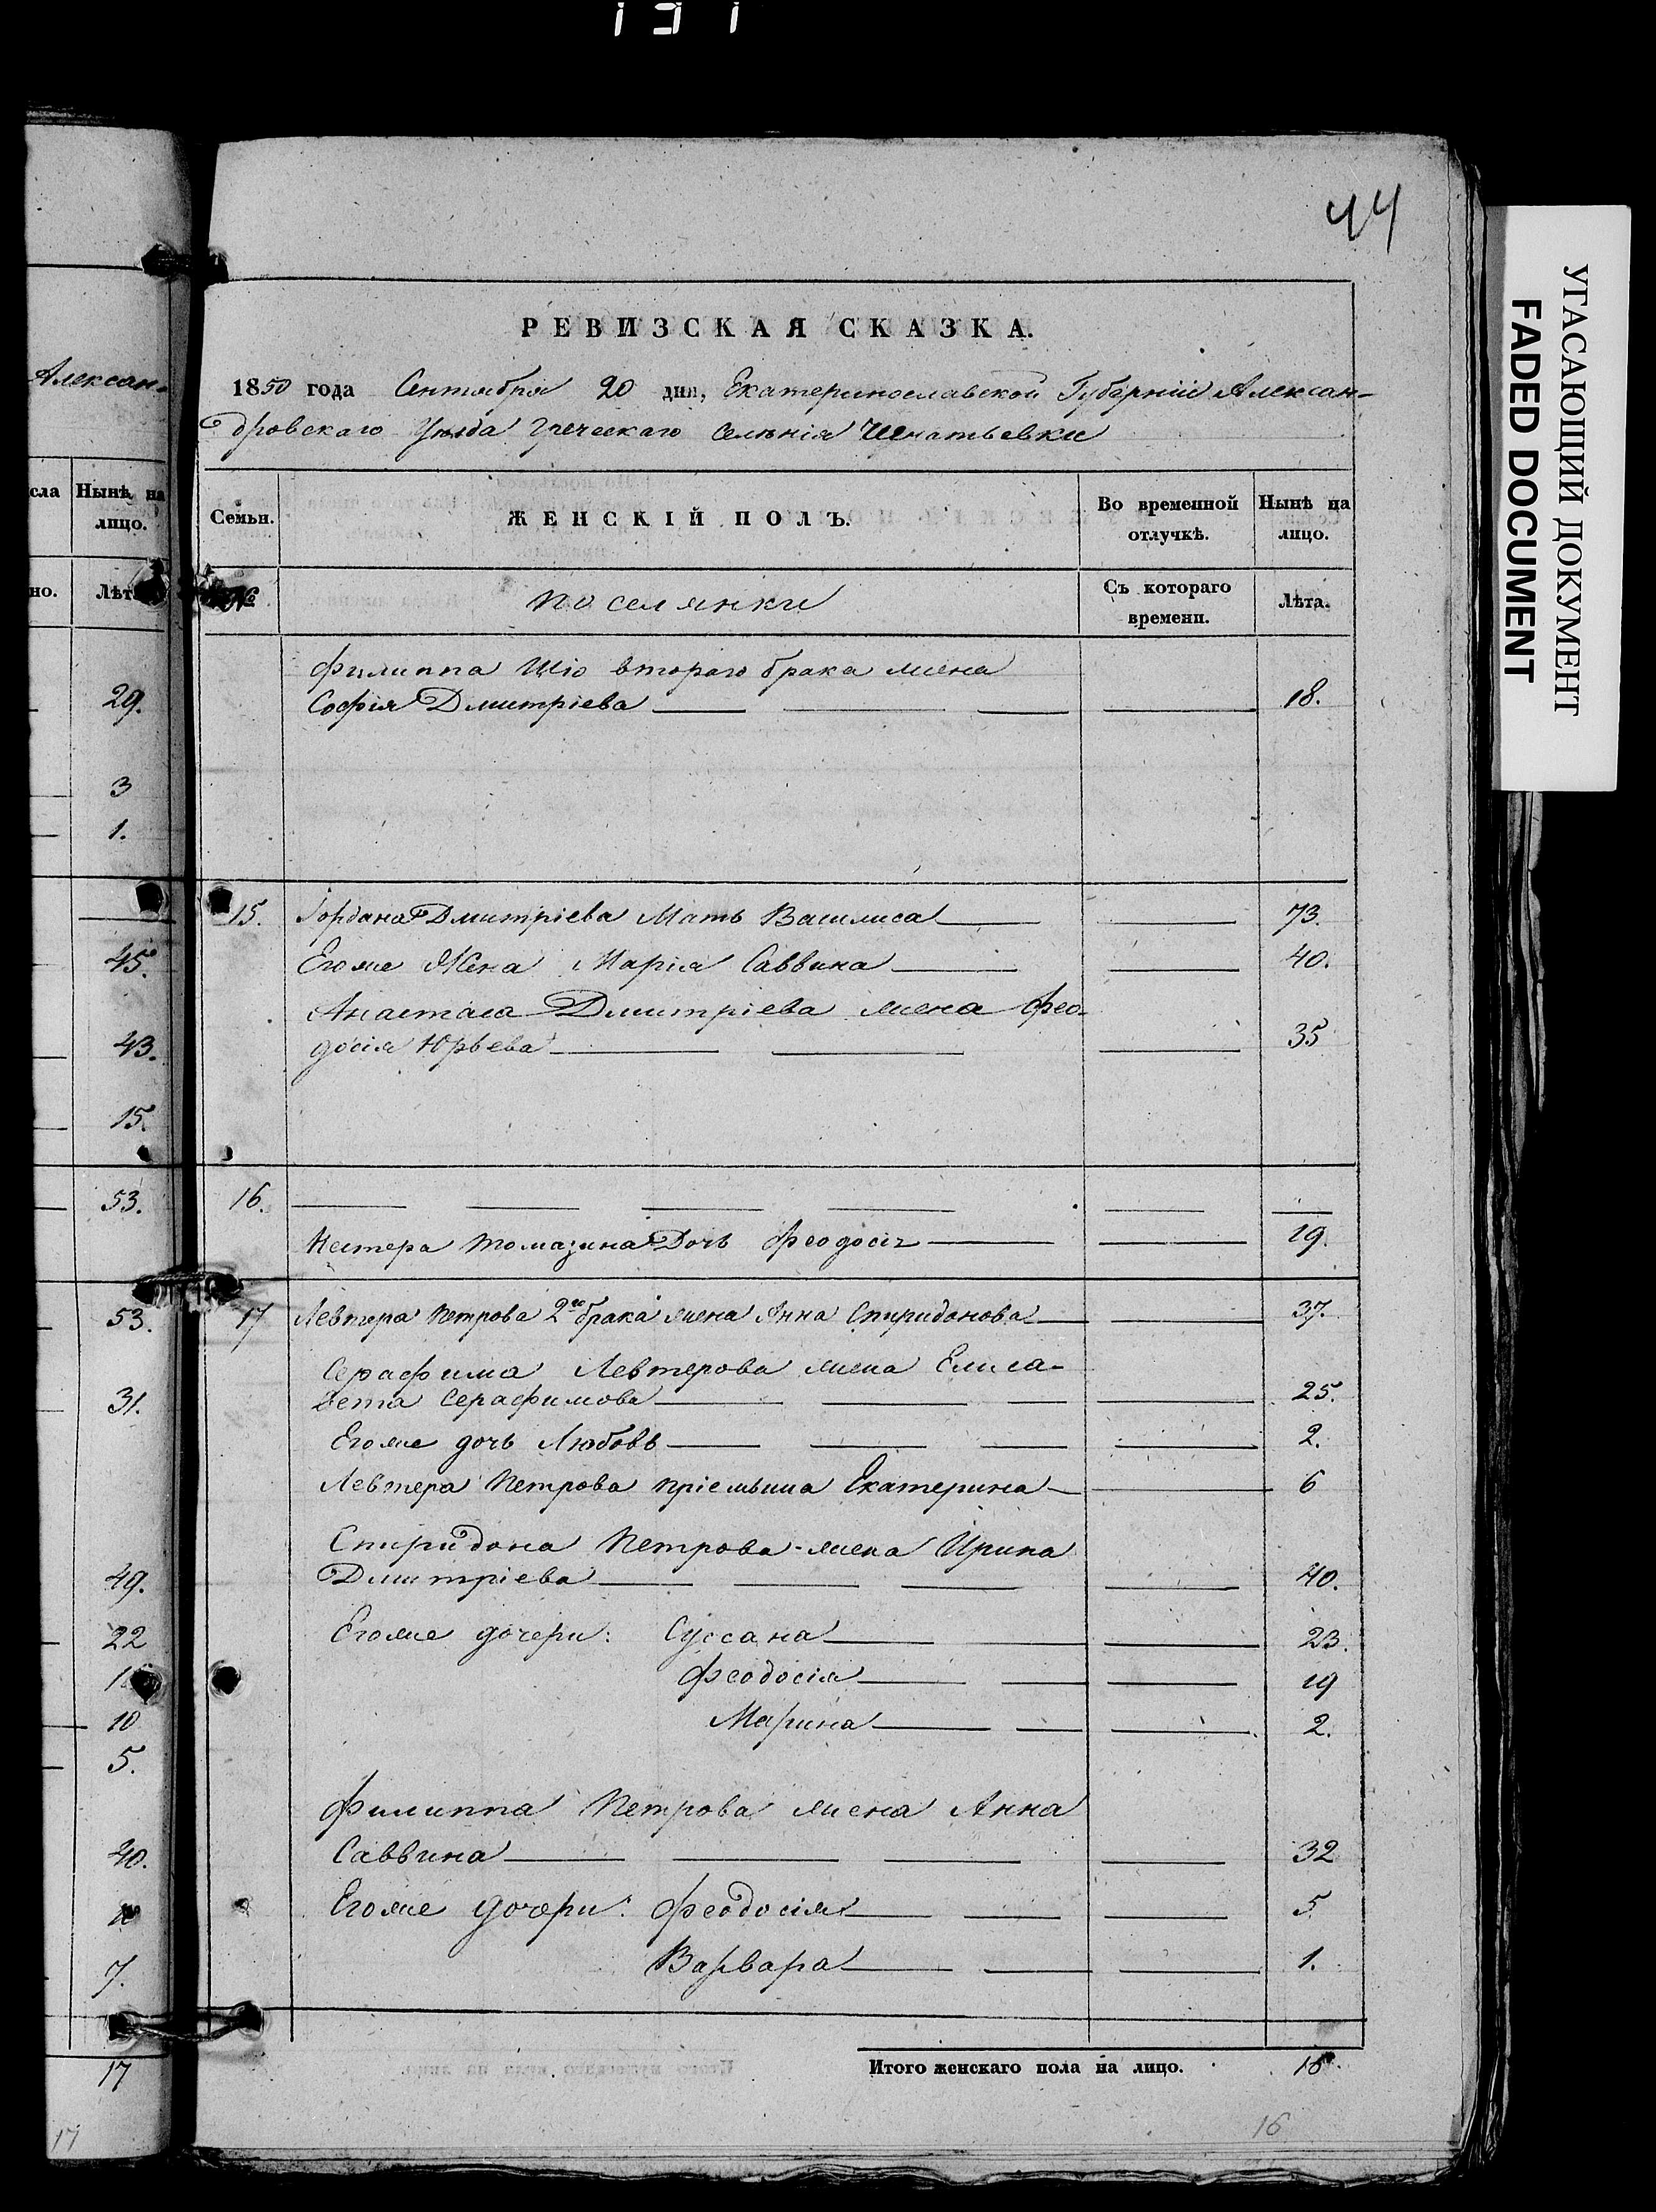 131
44
УГАСАЮЩИЙ ДОКУМЕНТ
FADED DOCUMENT
Алексан-
РЕВИЗСКАЯ СКАЗКА.
1850 года Сентября 20 дня, Екатеринославской Губерніи Алексан-
дровскаго Уѣзда Греческаго селенія Игнатьевки
сла Нынѣ на лицо.
но. Лѣта
Семьи. ЖЕНСКІЙ ПОЛЪ. Во временной отлучкѣ. Нынѣ на лицо.
№ поселянки Съ котораго времени. Лѣта.
Филиппа втораго брака жена
Софія Дмитріева 18.
15. Іордана Дмитріева Мать Василиса 73.
Егоже Жена Марія Саввина 40.
Анастаса Дмитріева жена Фео-
досія Юрьева 35
16.
Нестера Томазина Дочь Феодосія 19.
17 Левтера Петрова 2го брака жена Анна Спиридонова 37.
Серафима Левтерова жена Елиса-
вета Серафимова 25.
Егоже дочь Любовь 2.
Левтера Петрова пріемыша Екатерина 6
Спиридона Петрова жена Ирина
Дмитріева 40.
Егоже дочери: Суссана 23.
Феодосія 19
Марина 2.
Филиппа Петрова жена Анна
Саввина 32
Егоже дочери: Феодосія 5
Варвара 1.
Итого женскаго пола на лицо. 16.
16
29.
3
1.
45.
43.
15.
53.
53.
31.
49.
22
10
5.
40.
7.
17
17